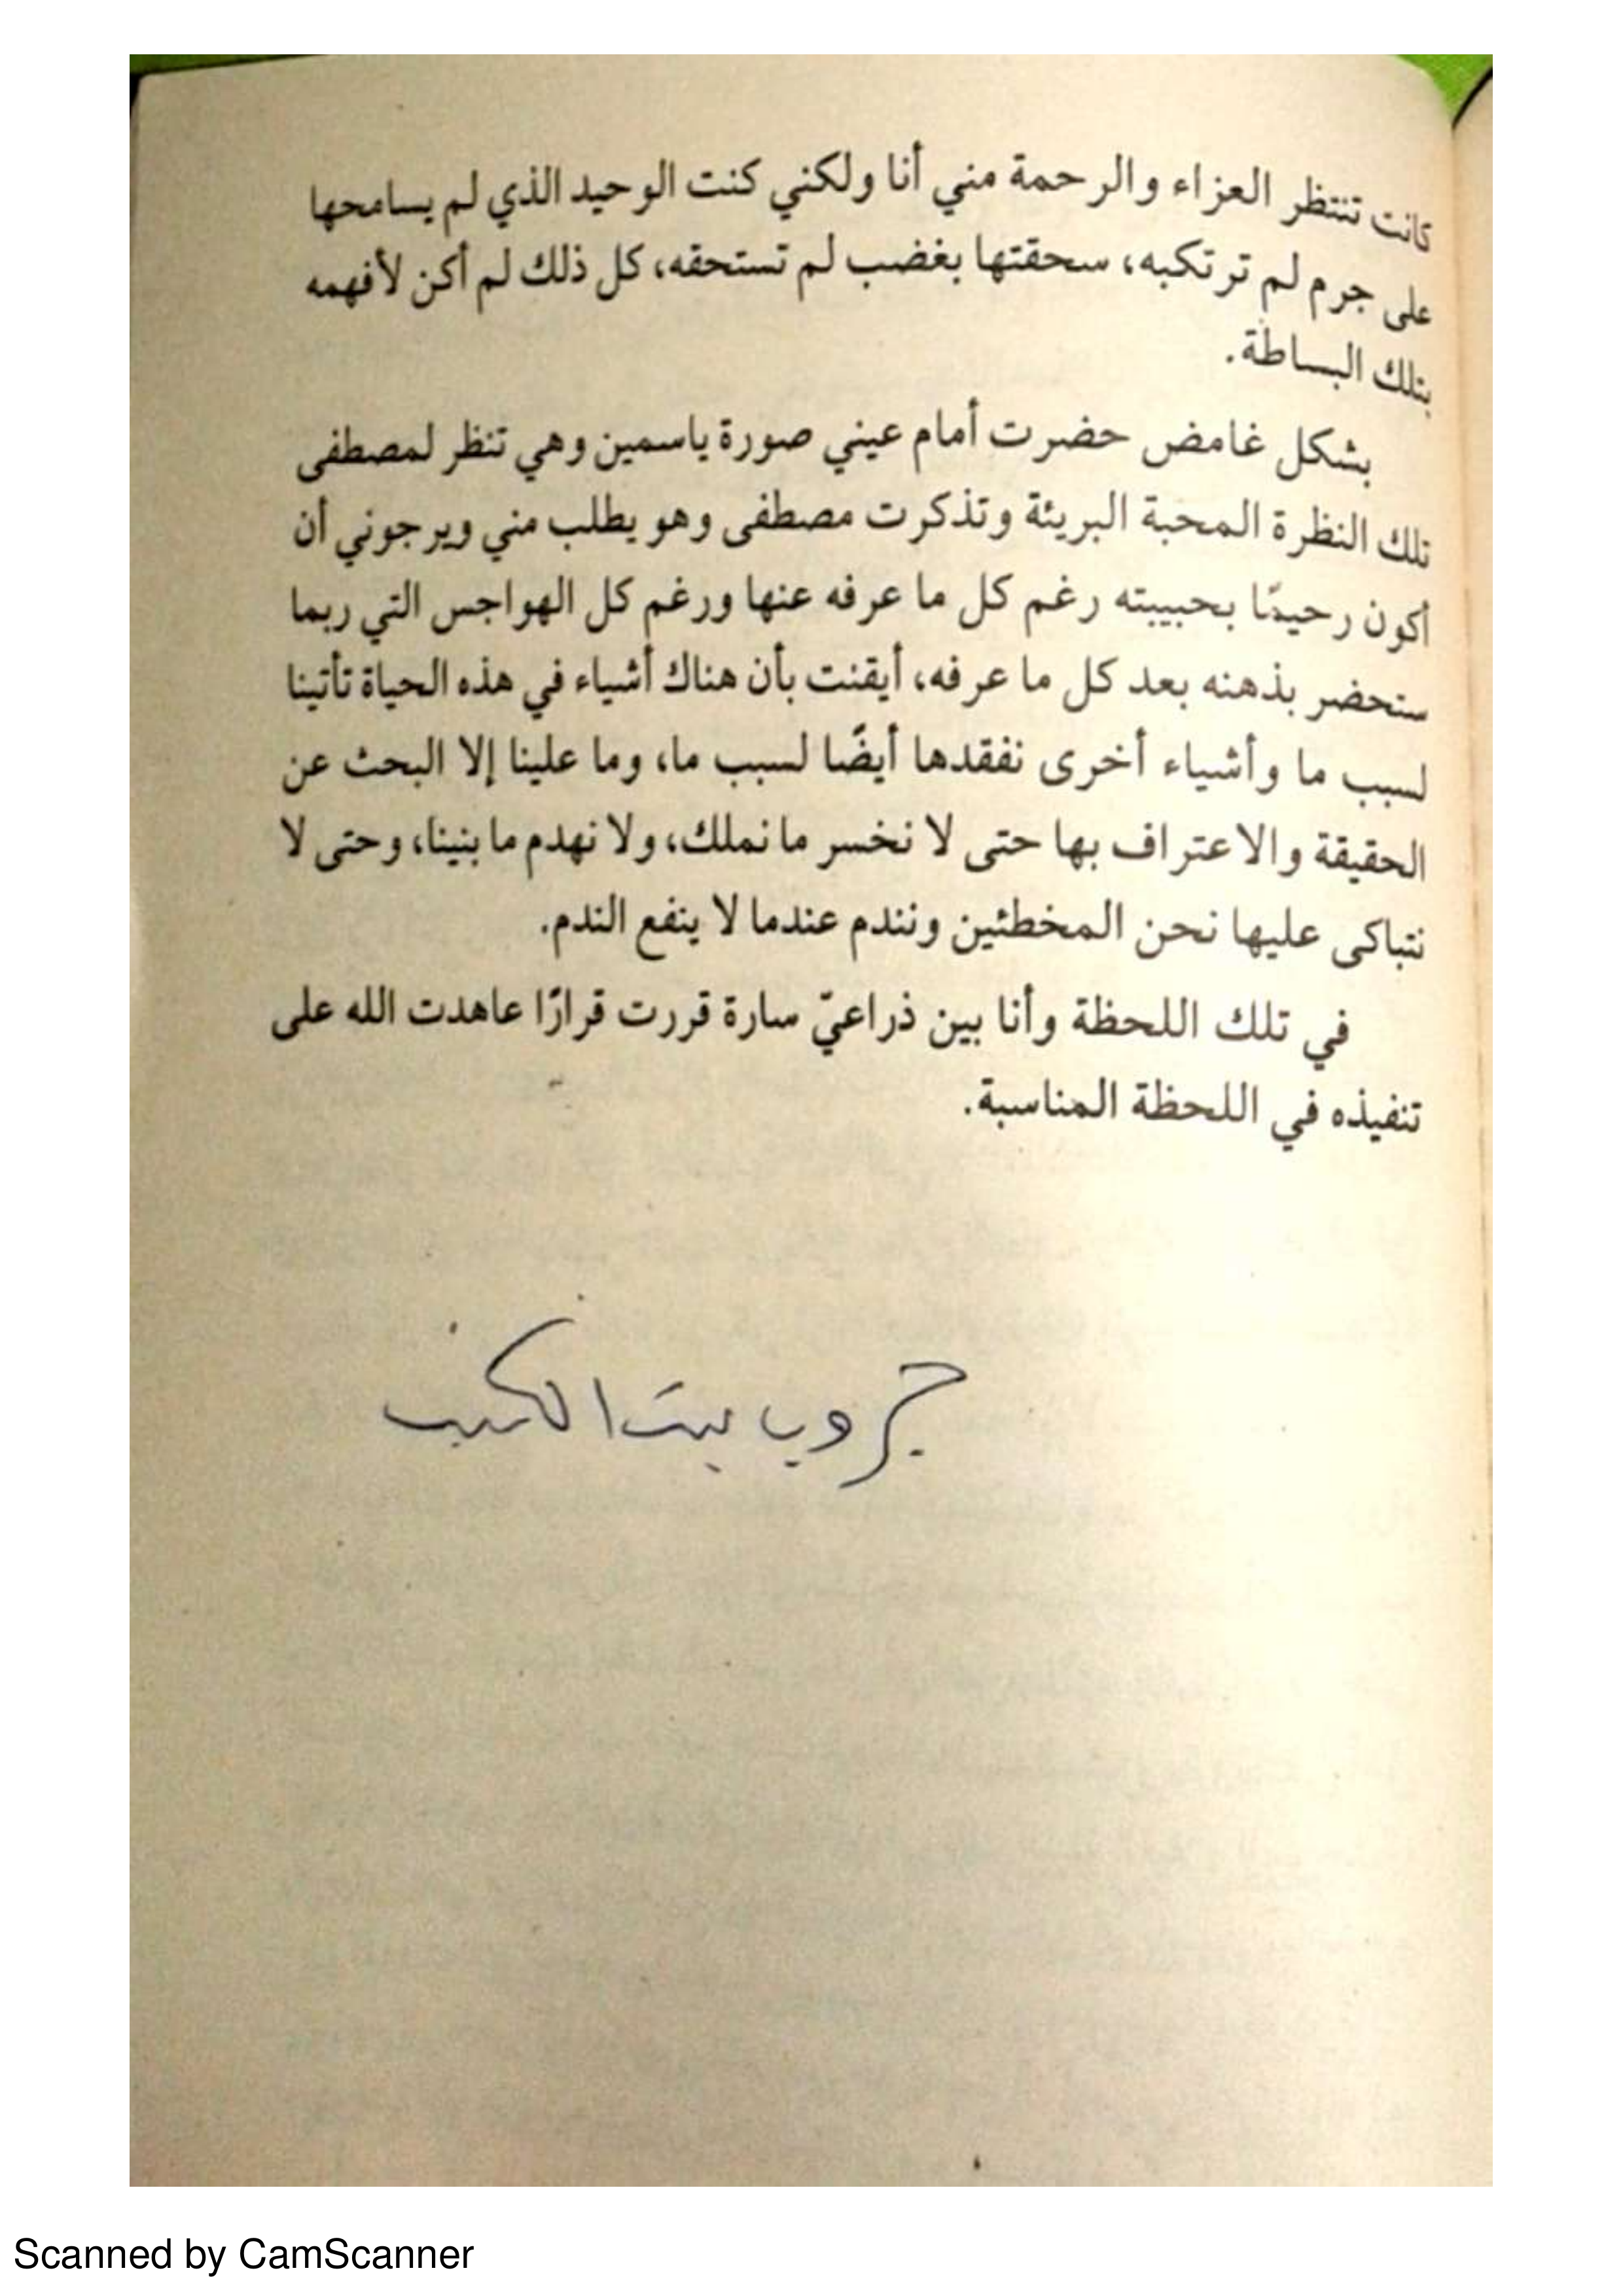 كانت تنتظر العزاء والرحمة مني أنا ولكني كنت الوحيد الذي لم يسامحها
على جرم لم ترتكبه، سحقتها بغضب لم تستحقه، كل ذلك لم أكن لأفهمه
بتلك البساطة.
بشكل غامض حضرت أمام عيني صورة ياسمين وهي تنظر لمصطفى
تلك النظرة المحبة البريئة وتذكرت مصطفى وهو يطلب مني ويرجوني أن
أكون رحيمًا بحبيبته رغم كل ما عرفه عنها ورغم كل الهواجس التي ربما
ستحضر بذهنه بعد كل ما عرفه، أيقنت بأن هناك أشياء في هذه الحياة تأتينا
لسبب ما وأشياء أخرى نفقدها أيضًا لسبب ما، وما علينا إلا البحث عن
الحقيقة والاعتراف بها حتى لا نخسر ما نملك، ولا نهدم ما بنينا، وحتى لا
نتباكى عليها نحن المخطئين ونندم عندما لا ينفع الندم.
في تلك اللحظة وأنا بين ذراعيّ سارة قررت قرارًا عاهدت الله على
تنفيذه في اللحظة المناسبة.
جروب بيت الكتب
Scanned by CamScanner